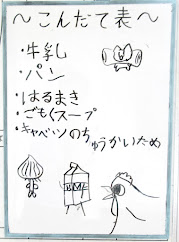 ～こんだて表～
・牛乳
・パン
・はるまき
・ごもくスープ
・キャベツのちゅうかいため